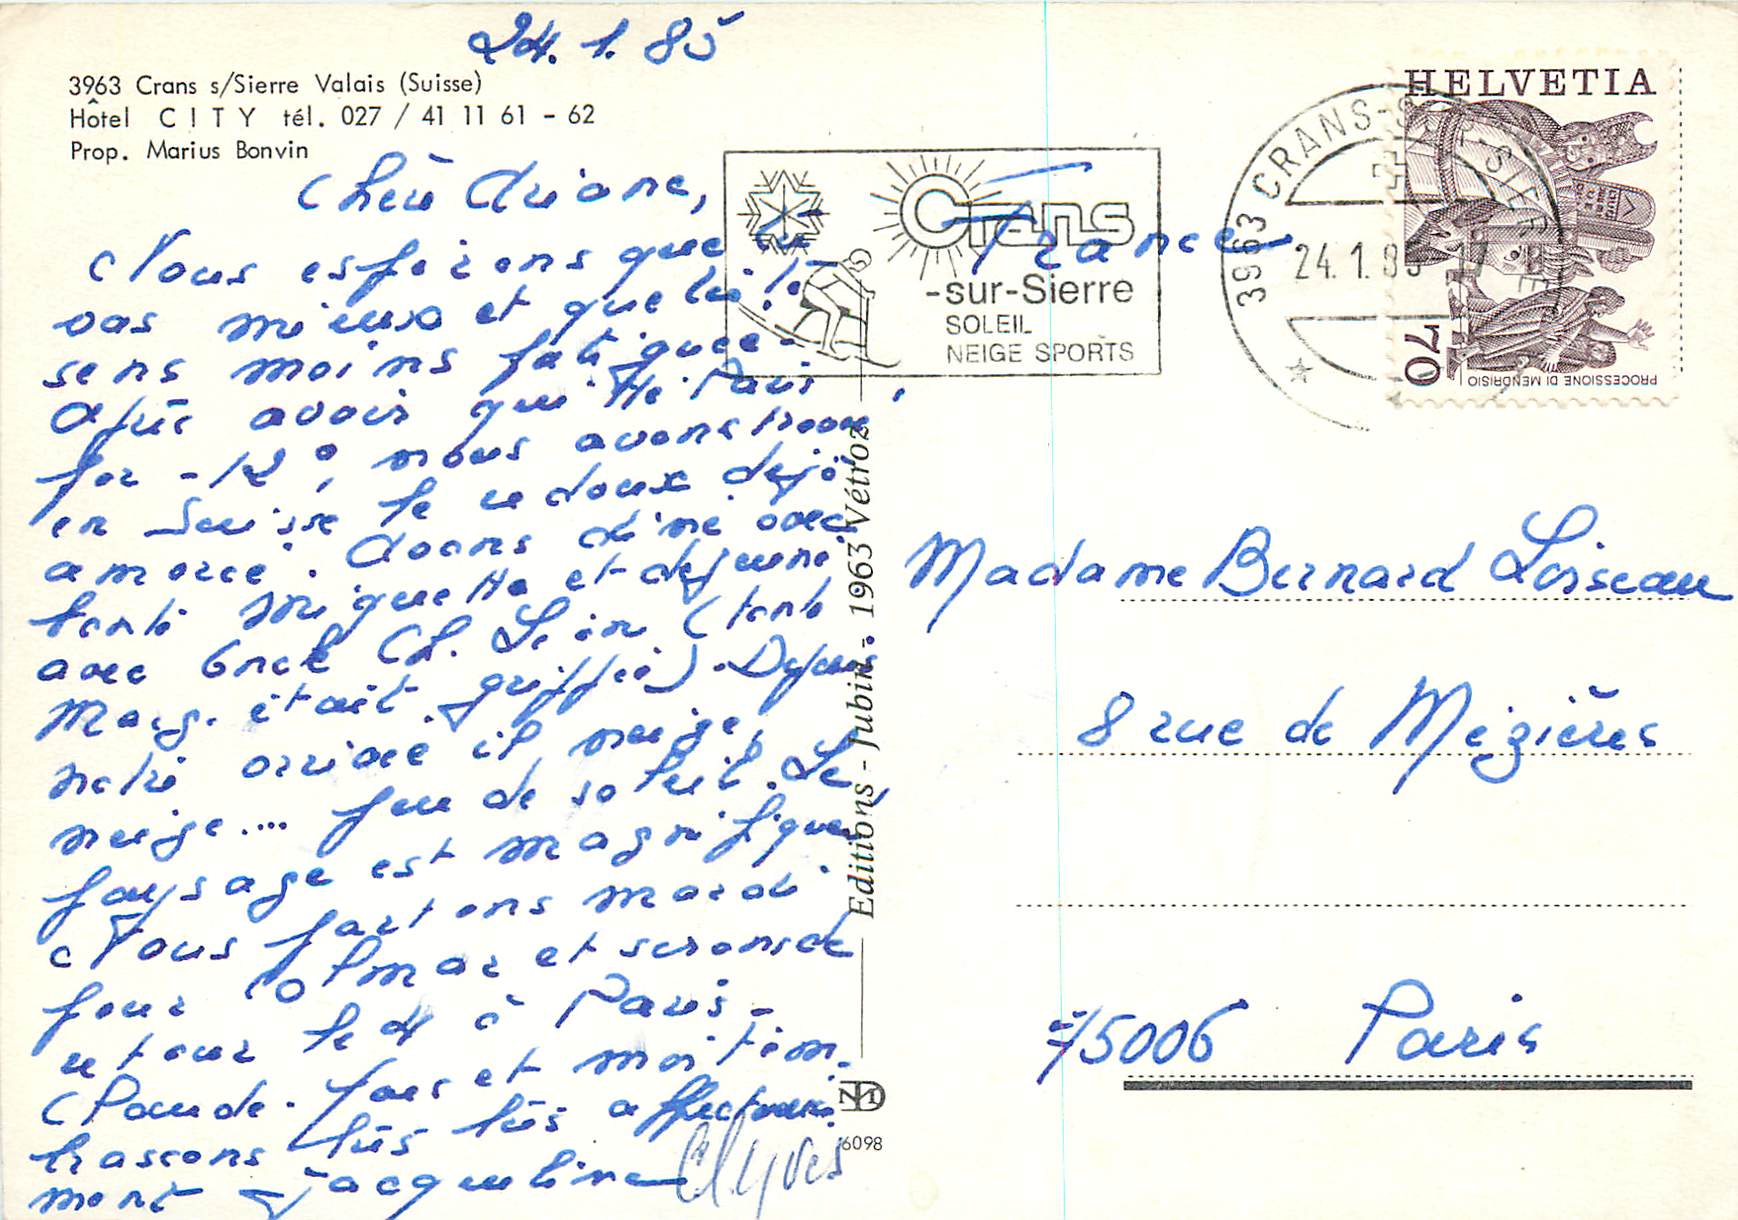 24.1.85
3963 Crans s/Sierre Valais (Suisse)
Hôtel CITY tél. 027 / 41 11 61 - 62
Prop. Marius Bonvin
Chère Ariane,
Nous espérons que tu
vas mieux et que tu te
sens moins fatiguée.
Après avoir quitté Paris
par -12°, nous avons trouvé
en Suisse le redoux déjà
amorcé. Avons dîné avec
tante Miquette et déjeuné
avec Oncle Ch. (tante
Marg. était grippée). Depuis
notre arrivée il neige,
neige.... peu de soleil. Le
paysage est magnifique,
Nous partons mardi
pour Colmar et serons de
retour le 4 à Paris -
Claude. Yves et moi t'em-
brassons très très affectueuse-
ment Jacqueline
Yves
Crans
-sur-Sierre
SOLEIL
NEIGE SPORTS
France
3963 CRANS-S/SIERRE
24.1.85-17
HELVETIA
70
PROCESSIONE DI MENDRISIO
Editions - Jubin - 1963 Vétroz
6098
Madame Bernard Loiseau
8 rue de Mézières
75006 Paris